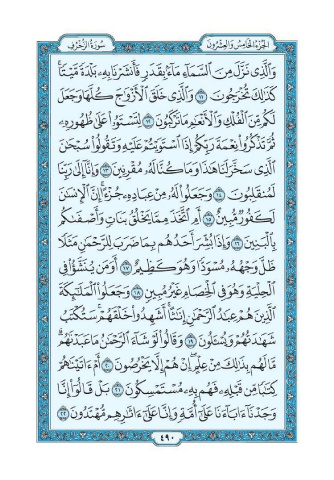 الجزء الخامس والعشرون
سورة الزخرف
وَالَّذِي نَزَّلَ مِنَ السَّمَاءِ مَاءً بِقَدَرٍ فَأَنشَرْنَا بِهِ بَلْدَةً مَّيْتًا
كَذَٰلِكَ تُخْرَجُونَ ١١ وَالَّذِي خَلَقَ الْأَزْوَاجَ كُلَّهَا وَجَعَلَ
لَكُم مِّنَ الْفُلْكِ وَالْأَنْعَامِ مَا تَرْكَبُونَ ١٢ لِتَسْتَوُوا عَلَىٰ ظُهُورِهِ
ثُمَّ تَذْكُرُوا نِعْمَةَ رَبِّكُمْ إِذَا اسْتَوَيْتُمْ عَلَيْهِ وَتَقُولُوا سُبْحَٰنَ
الَّذِي سَخَّرَ لَنَا هَٰذَا وَمَا كُنَّا لَهُ مُقْرِنِينَ ١٣ وَإِنَّا إِلَىٰ رَبِّنَا
لَمُنقَلِبُونَ ١٤ وَجَعَلُوا لَهُ مِنْ عِبَادِهِ جُزْءًا إِنَّ الْإِنسَٰنَ
لَكَفُورٌ مُّبِينٌ ١٥ أَمِ اتَّخَذَ مِمَّا يَخْلُقُ بَنَاتٍ وَأَصْفَىٰكُم
بِالْبَنِينَ ١٦ وَإِذَا بُشِّرَ أَحَدُهُم بِمَا ضَرَبَ لِلرَّحْمَٰنِ مَثَلًا
ظَلَّ وَجْهُهُ مُسْوَدًّا وَهُوَ كَظِيمٌ ١٧ أَوَمَن يُنَشَّؤُا فِي
الْحِلْيَةِ وَهُوَ فِي الْخِصَامِ غَيْرُ مُبِينٍ ١٨ وَجَعَلُوا الْمَلَٰئِكَةَ
الَّذِينَ هُمْ عِبَٰدُ الرَّحْمَٰنِ إِنَٰثًا أَشَهِدُوا خَلْقَهُمْ سَتُكْتَبُ
شَهَٰدَتُهُمْ وَيُسْـَٔلُونَ ١٩ وَقَالُوا لَوْ شَاءَ الرَّحْمَٰنُ مَا عَبَدْنَٰهُم
مَّا لَهُم بِذَٰلِكَ مِنْ عِلْمٍ إِنْ هُمْ إِلَّا يَخْرُصُونَ ٢٠ أَمْ ءَاتَيْنَٰهُمْ
كِتَٰبًا مِّن قَبْلِهِ فَهُم بِهِ مُسْتَمْسِكُونَ ٢١ بَلْ قَالُوا إِنَّا
وَجَدْنَا ءَابَاءَنَا عَلَىٰ أُمَّةٍ وَإِنَّا عَلَىٰ ءَاثَٰرِهِم مُّهْتَدُونَ ٢٢
٤٩٠